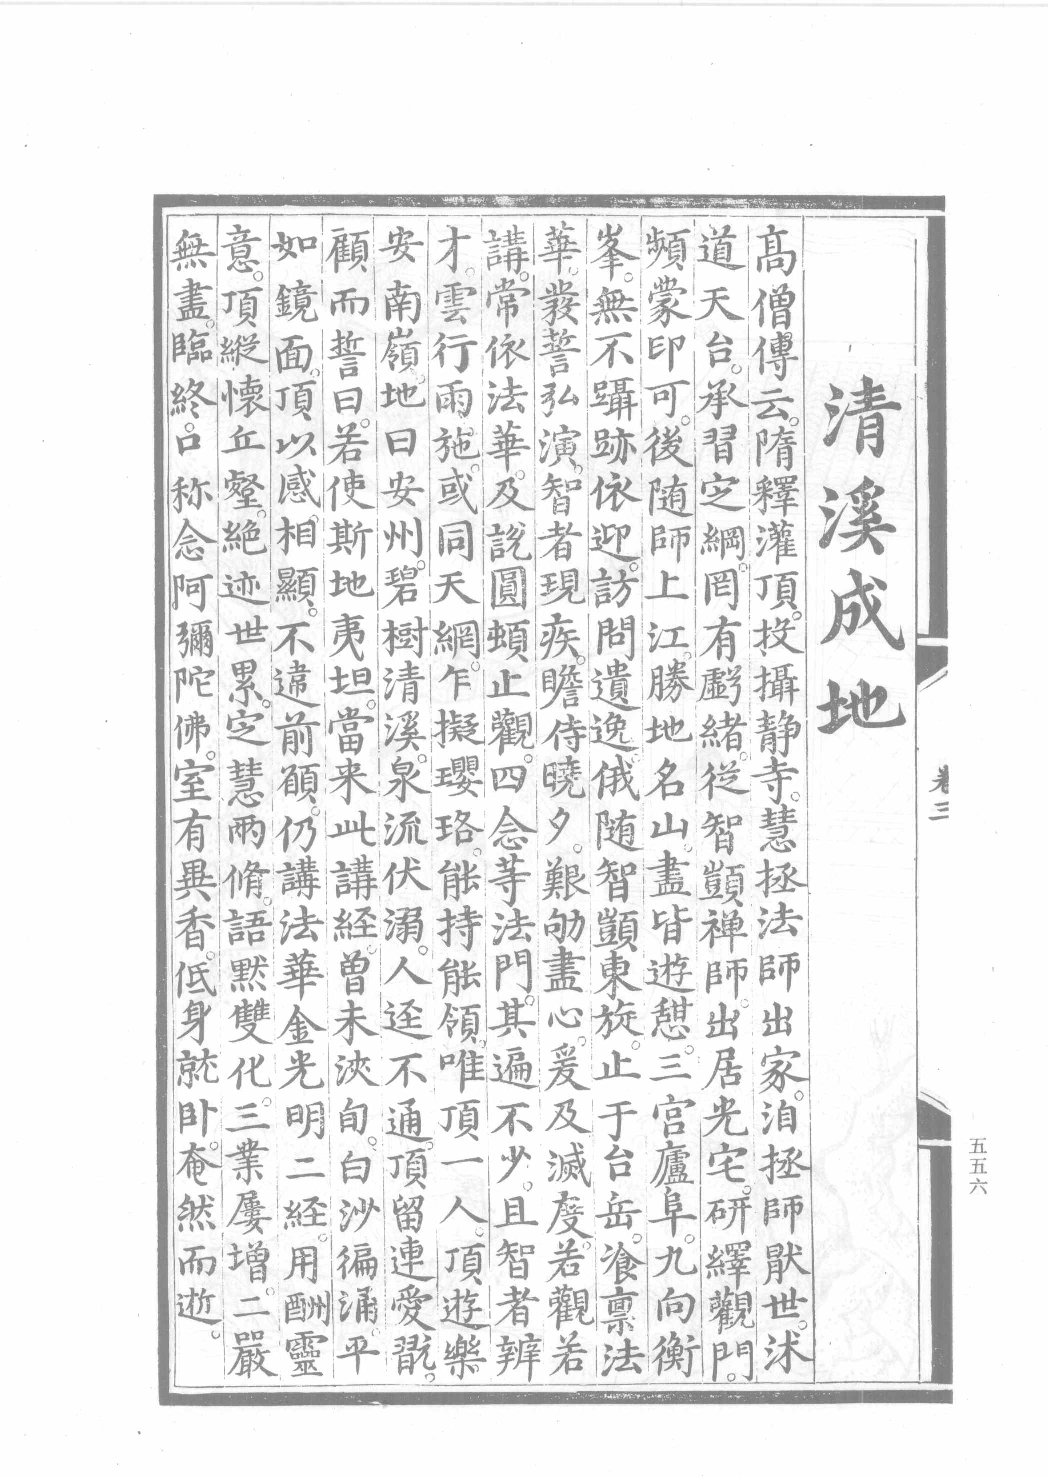 清溪成地
高僧傳云。隋釋灌頂。投攝静寺。慧拯法師出家。洎拯師厭世。沭
道天台。承習定綱。罔有虧緒。從智顗禅師。出居光宅。研繹觀門。
頻蒙印可。後随師上江。勝地名山。盡皆遊憩。三宮廬阜。九向衡
峯。無不躡跡依迎。訪問遺逸。俄随智顗東旋。止于台岳。飡禀法
華。發誓弘演。智者現疾。瞻侍曉夕。艱劬盡心。爰及滅度。若觀若
講。常依法華。及說圓頓止觀。四念等法門。其遍不少。且智者辨
才。雲行雨施。或同天網。乍擬瓔珞。能持能領。唯頂一人。頂遊樂
安南嶺。地曰安州。碧樹清溪。泉流伏溺。人迳不通。頂留連愛翫。
顧而誓曰。若使斯地夷坦。當来此講経。曾未浹旬。白沙徧涌。平
如鏡面。頂以感相顯。不違前願。仍講法華金光明二経。用酬靈
意。頂縱懷丘壑。絕迹世累。定慧兩脩。語默雙化。三業屢增。二嚴
無盡。臨終。口称念阿彌陀佛。室有異香。低身就卧。奄然而逝。
卷三
五五六